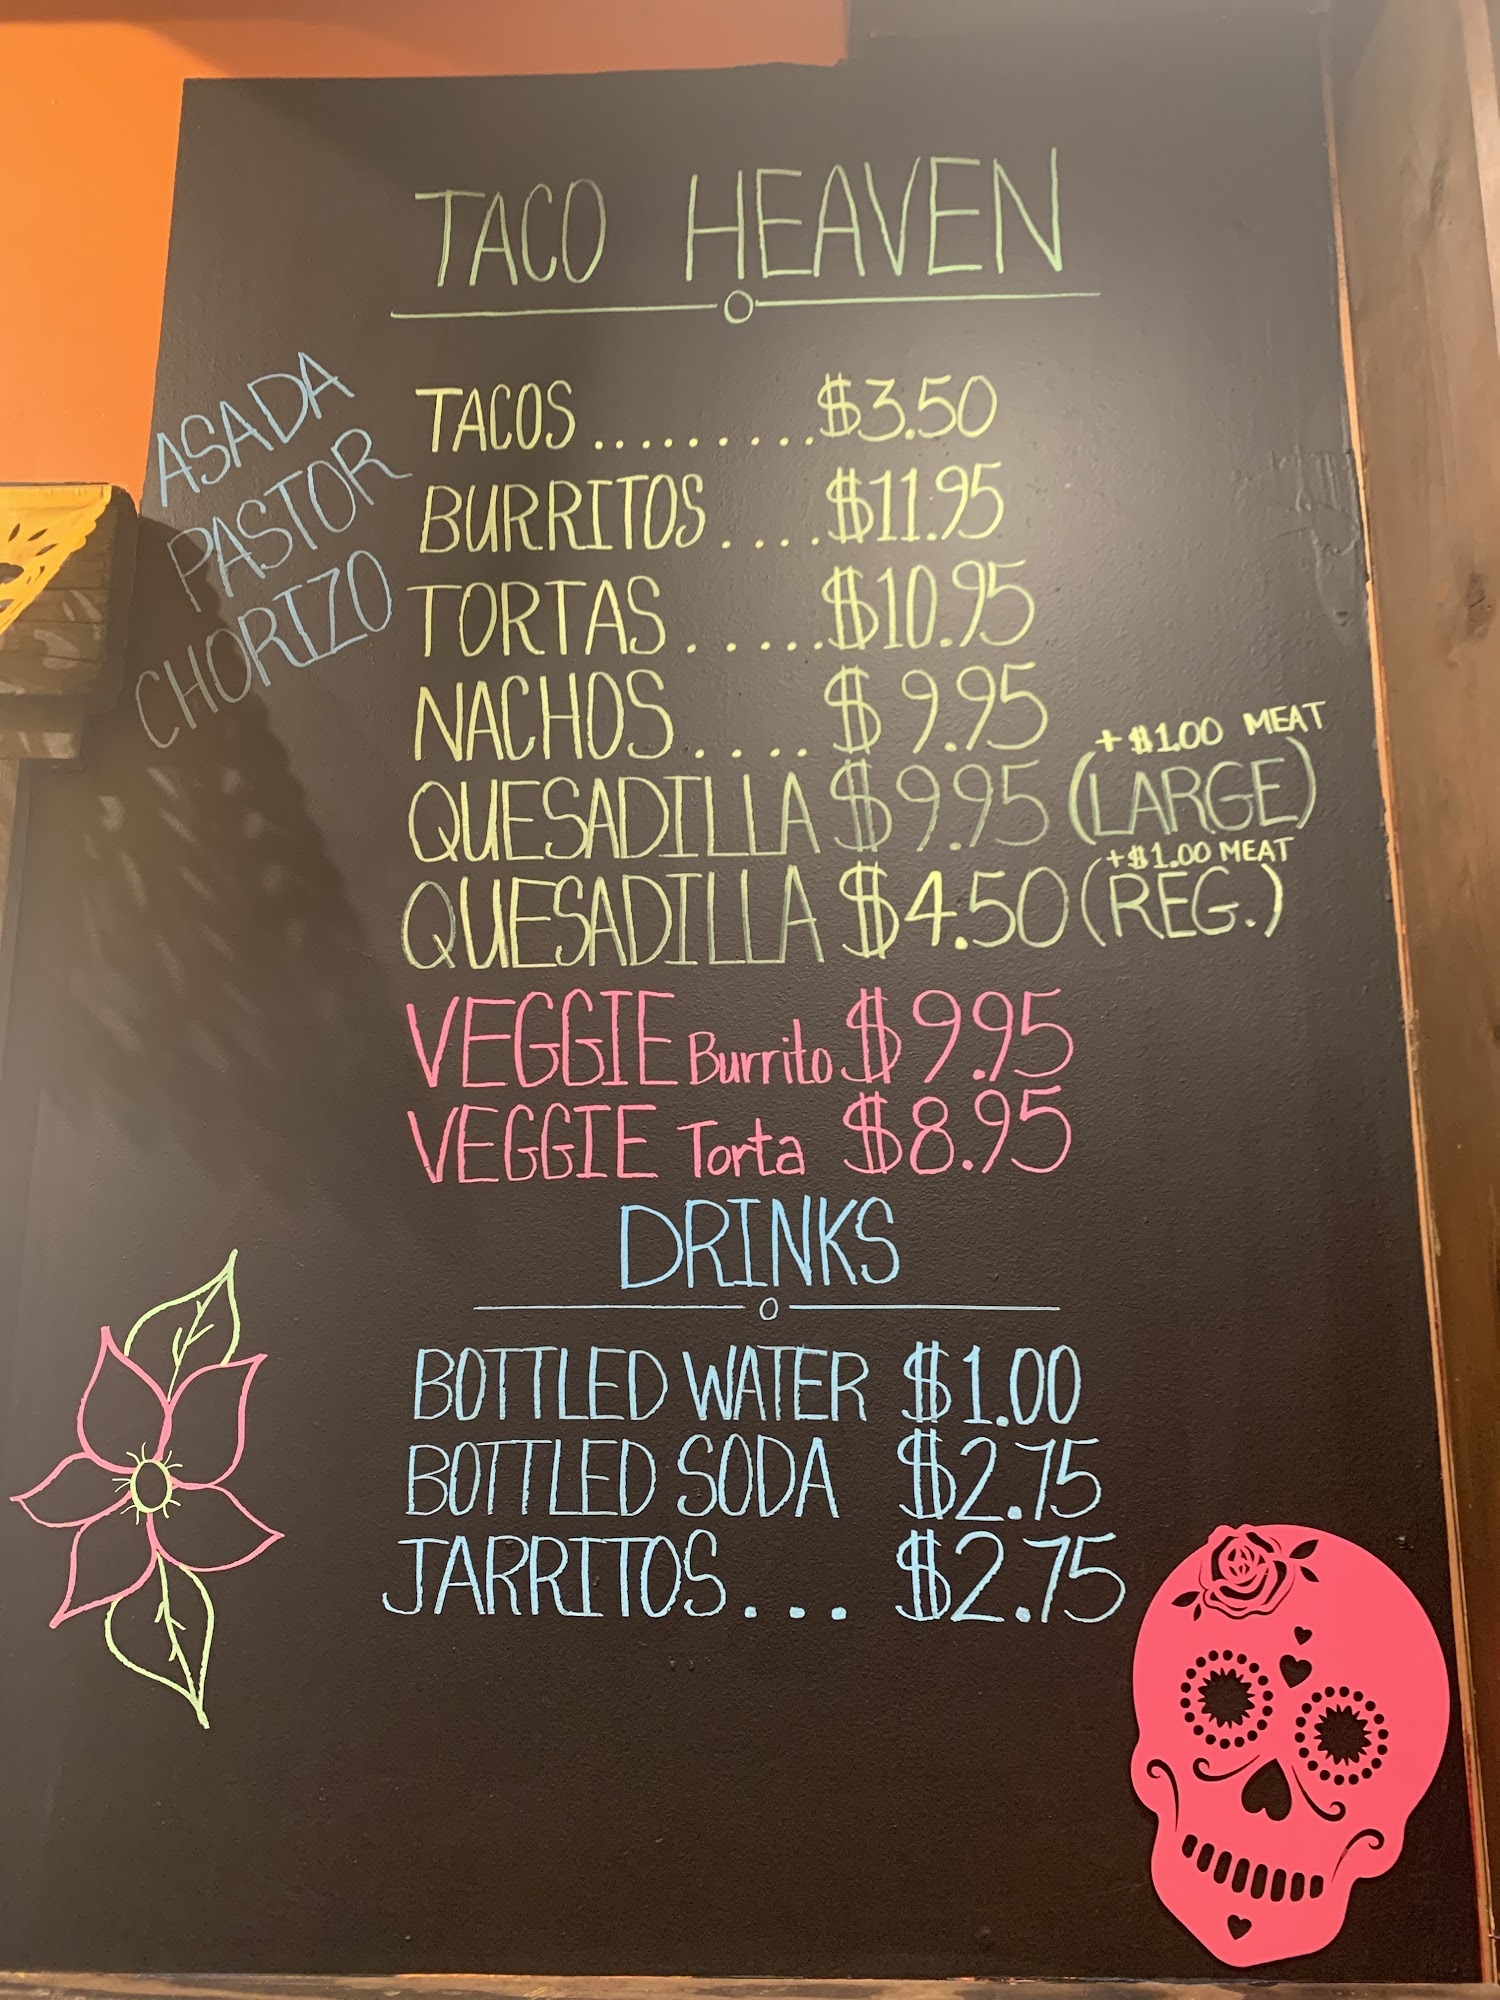 TACO HEAVEN
ASADA
PASTOR
CHORIZO
TACOS.........$3.50
BURRITOS....$11.95
TORTAS.....$10.95
NACHOS....$9.95
+$1.00 MEAT
QUESADILLA $9.95 (LARGE)
+$1.00 MEAT
QUESADILLA $4.50 (REG.)
VEGGIE Burrito $9.95
VEGGIE Torta $8.95
DRINKS
BOTTLED WATER $1.00
BOTTLED SODA $2.75
JARRITOS... $2.75